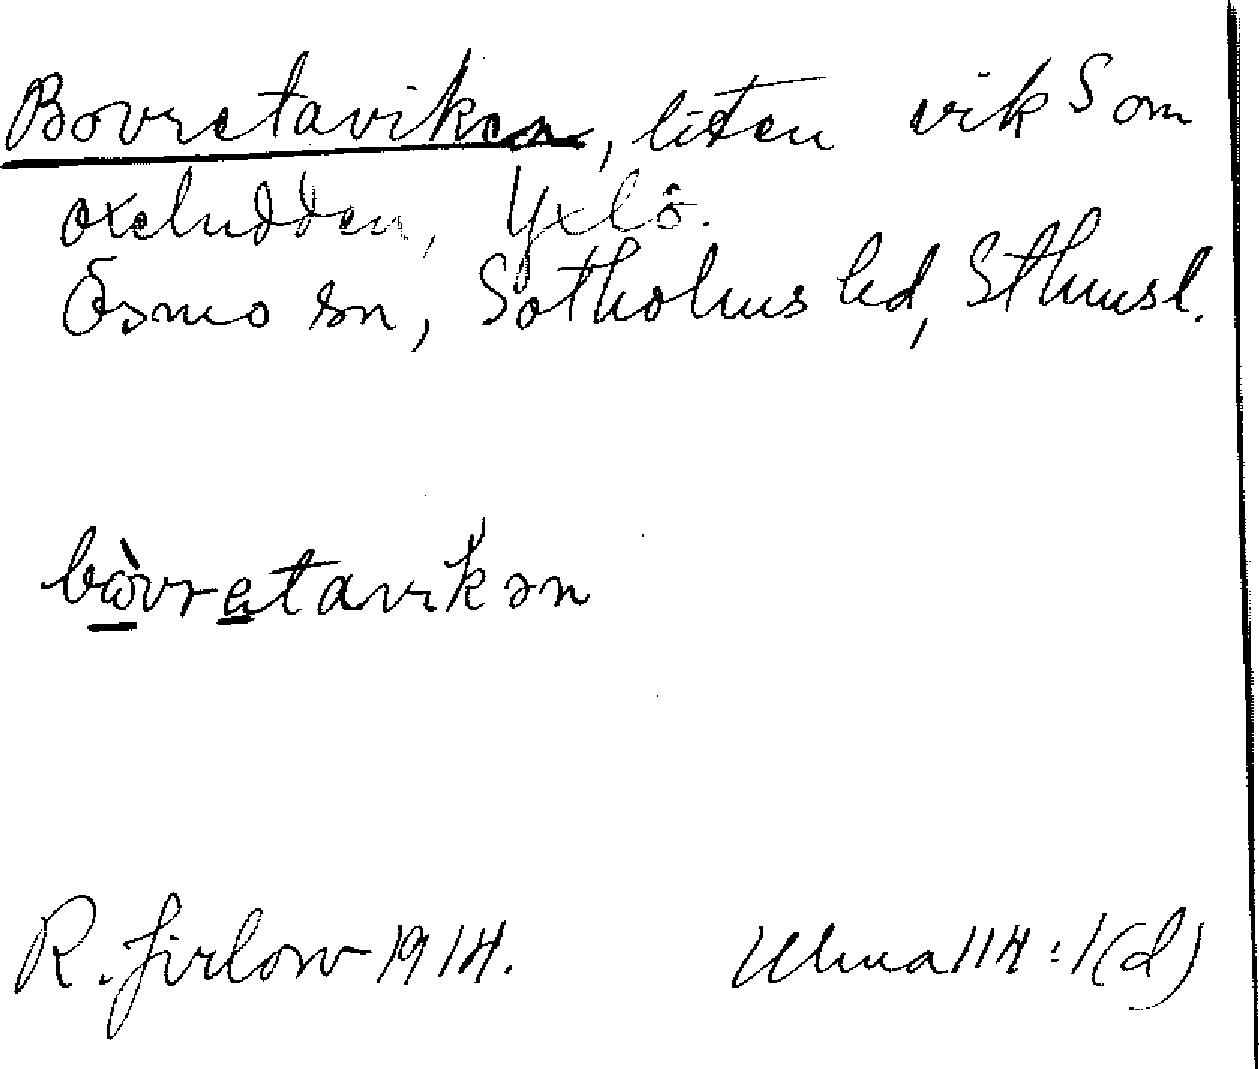 Bovretaviken, liten vik S om
oxeludden, Yxlö.
Ösmo sn, Sotholms hd, Sthmsl.
bòvretavikən
R. Jirlow 1914.
Ulma 114:1(d)